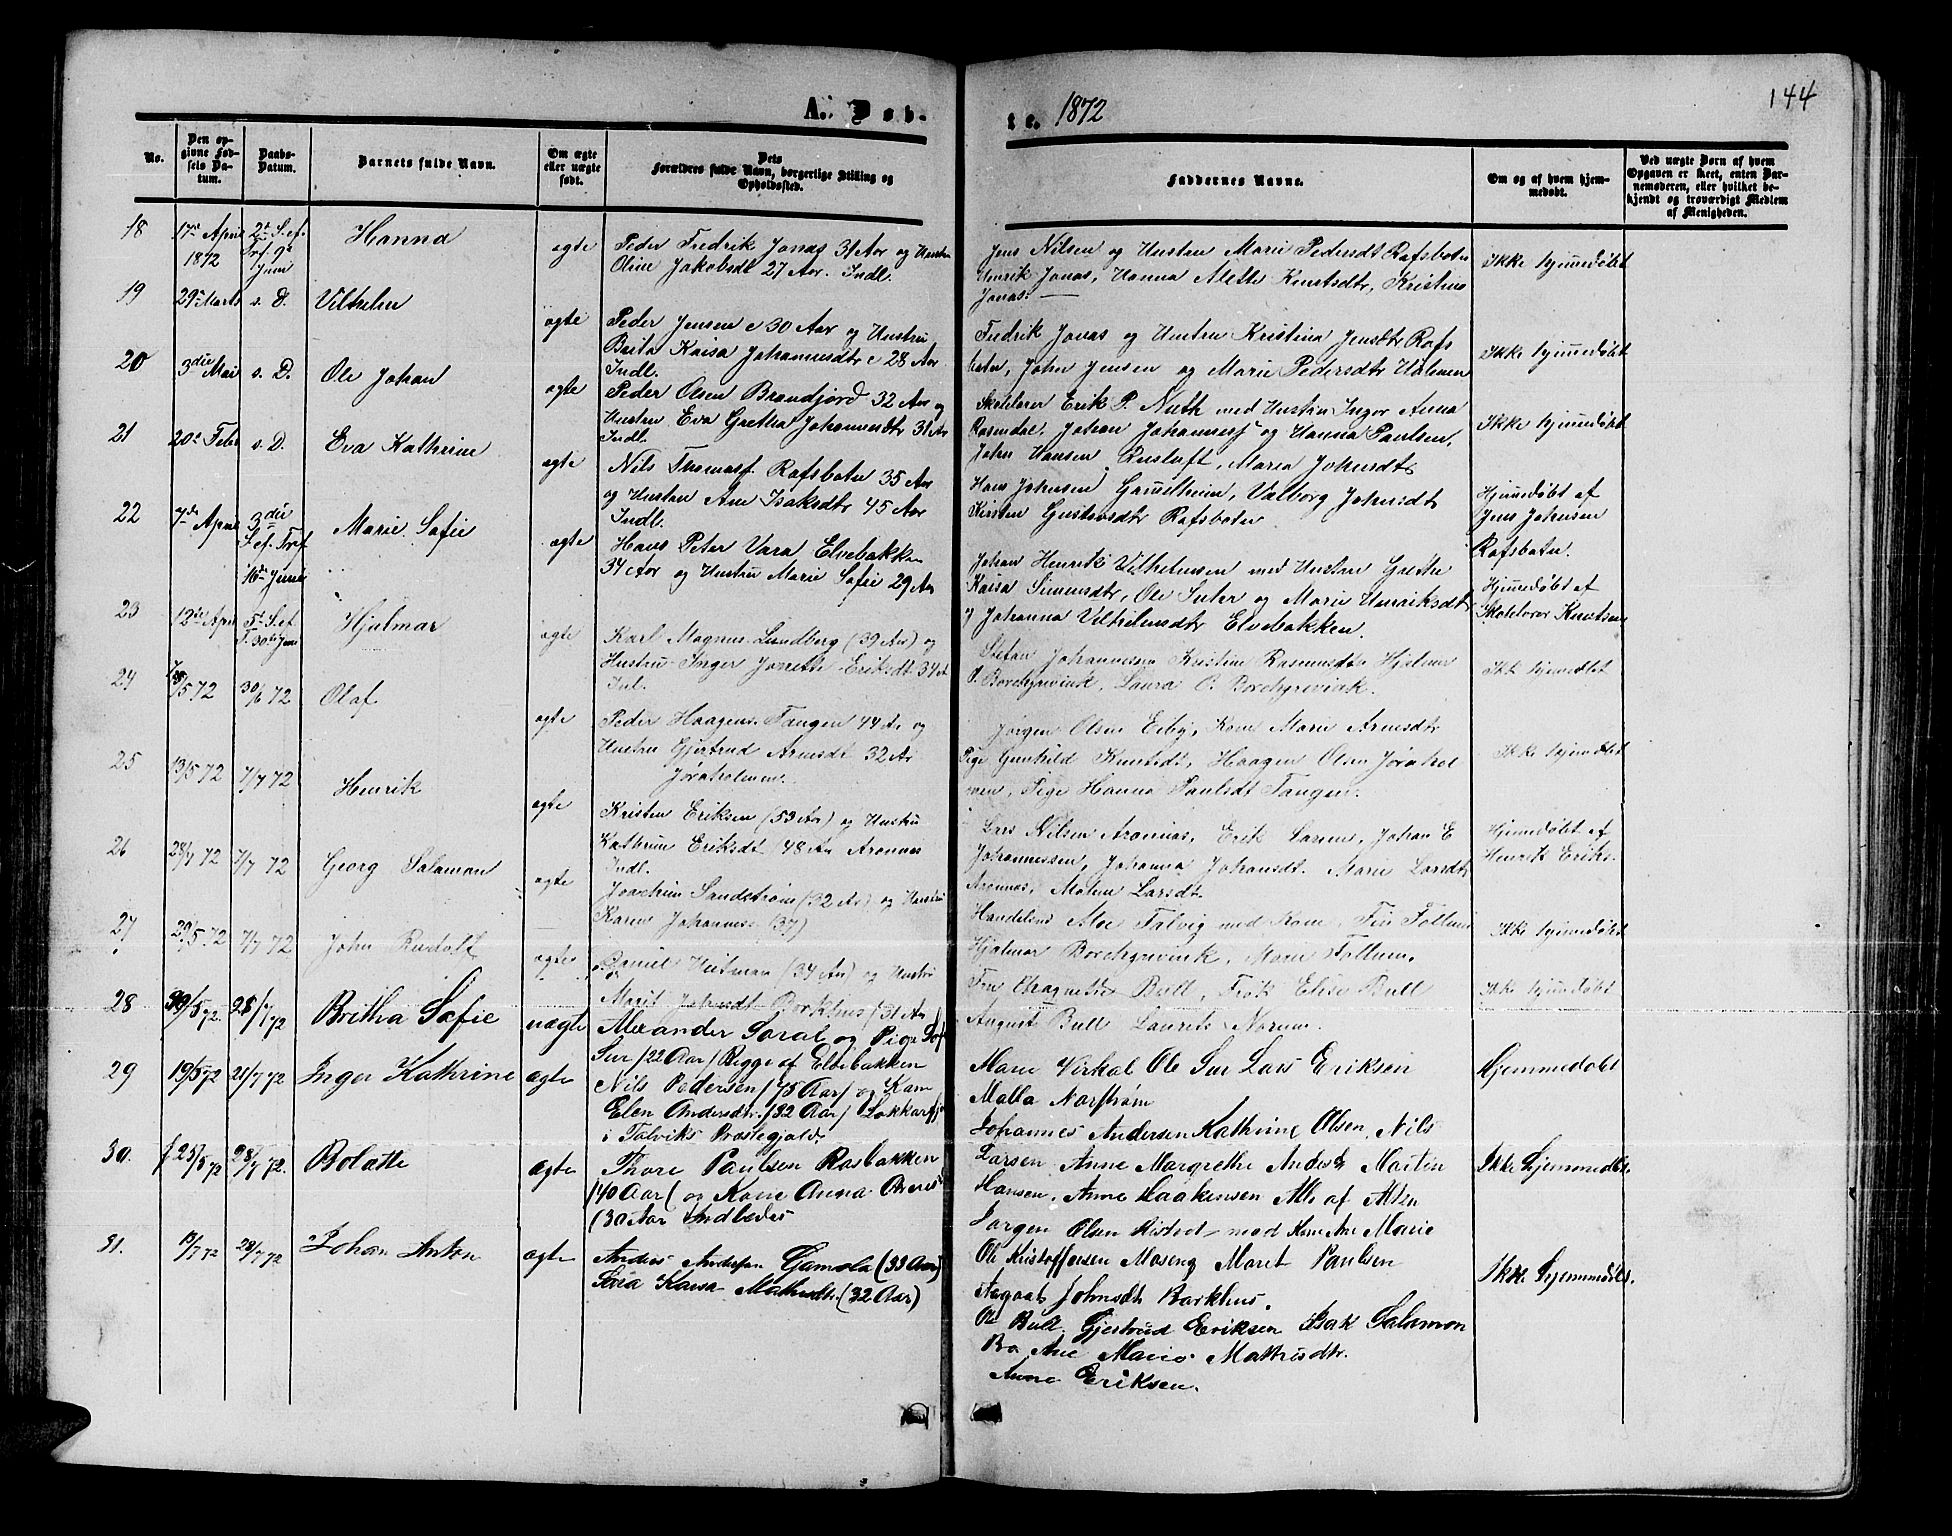 A. Døb-
te. 1872
144
No.
Den op-
givne Fød-
sels Da-
tum.
Daabs-
Datum.
Barnets fulde Navn.
Om ægte
eller uægte
født.
Dets
Forældres fulde Navn, borgerlige Stilling og
Opholdssted.
Faddernes Navne.
Om og af hvem hjem-
medøbt.
Ved uægte Børn af hvem
Opgaven er skeet, enten Bar-
nemoderen, eller hvilket be-
kjendt og troværdigt Medlem
af Menigheden.
18
17de April
1872
2d S. ef.
Trf. 9de
Juni
Hanna
ægte
Peder Fredrik Jonas 31 Aar og Hustru
Oline Jakobsdt 27 Aar. Indl.
Jens Nilsen og Hustru Marie Pedersdt Rafsbotn
Henrik Jonas, Hanna Mette Knutsdtr, Kristine
Jonas.
Ikke hjemmedøbt
19
29de Marts
s. D.
Vilhelm
ægte
Peder Jensen 30 Aar og Hustru
Brita Kaisa Johannesdtr 28 Aar
Indl.
Fredrik Jonas og Hustru Kristina Jensdtr Rafs
botn, John Jensen og Marie Pedersdtr Holmen
Ikke hjemmedøbt
20
3die Mai
s. D.
Ole Johan
ægte
Peder Olsen Brandfjord 32 Aar og
Hustru Eva Gretha Johannesdtr 31 Aar
Indl.
Skolelærer Erik P. Nuth med Hustru Inger Anna
Rosendal, Johan Johannesf og Hanna Paulsen,
Ikke hjemmedøbt
21
20de Febr
s. D.
Eva Kathrine
ægte
Nils Thomasf. Rafsbotn 35 Aar
og Hustru Ane Isaksdtr 45 Aar
Indl.
John Hansen Rusluft, Maria Johnsdtr
Hans Johnsen Gamelheim, Valborg Johnsdtr
Kirsten Gustavsdtr Rafsbotn
Hjemmedøbt af
Jens Johnsen
Rafsbotn.
22
7de April
3die
S. ef. Tref.
16de Juni
Marie Sofie
ægte
Hans Peter Vara Elvebakken
34 Aar og Hustru Marie Sofie 29 Aar
Johan Henrik Vilhelmsen med Hustru Grethe
Kaisa Simunsdtr, Ole Suhr og Marie Henriksdtr
Johanna Vilhelmsdtr Elvebakken.
Hjemmedøbt af
Skolelærer Knutsen
23
12te April
5te S. ef
T. 30te Juni
Hjalmar
ægte
Karl Magnus Lundberg (39 Aar) og
Hustru Inger Jonette Eriksdt 34 A
Indl.
Stefan Johannesen Kristine Rasmusdtr Hjalmar
O. Borchgrevink, Laura O. Borchgrevink.
Ikke hjemmedøbt
24
18/5 72
30/6 72
Olaf
ægte
Peder Haagens. Tangen 44 Aar og
Hustru Gjertrud Arnesdt 32 Aar
Jøraholmen.
Jørgen Olsen Eiby, Kone Marie Arnesdtr
Pige Gunhild Knutsdt, Haagen Olsen Jørahol
men, Pige Hanna Paulsdt Tangen.
Ikke hjemmedøbt
25
13/5 72
7/7 72
Henrik
ægte
Kristen Eriksen (53 Aar) og Hustru
Kathrine Eriksdt (48 Aar Aronnes
Indl.
Lars Nilsen Aronnes, Erik Larsen, Johan E
Johannessen, Johanna Johansdt. Marie Larsdt
Aronnes, Malene Larsdt.
Hjemmedøbt af
Henrik Eriks.
26
7/7 72
Georg Salamon
ægte
Joachim Sandstrøm (32 Aar) og Hustru
Karen Johannesd (37)
Handelsm Aloe Talvig med Kone, Frk Follum
Hjalmar Borchgrevink, Marie Follum.
Ikke hjemmedøbt
27
29/5. 72
7/7 72
John Rudolf
ægte
Daniel Heitman (34 Aar) og Hustru
Marit Johnsdt Borkhus (31 Aar
Fru Bull, Frøk Elise Bull
August Bull Laurits Norum.
Ikke hjemmedøbt
28
30/5 72.
28/7 72
Britha Sofie
uægte
Alexander Soral og Pige Sof
Sur /22 Aar/ Begge af Elvebakken
Mane Virkal Ole Sur Lars Eriksen
Malla Norstrøm
Hjemmedøbt
29
19/5 72
21/7 72
Inger Kathrine
ægte
Nils Pedersen /75 Aar/ og Kone
Elen Andersdtr. /32 Aar/ Lokkarfj
i Talviks Præstegjæld.
Johannes Andersen Kathrine Olsen, Nils
Larsen, Anne Margrethe Andersdt Martin
Hansen, Anne Haakensen Alle af Alten
30.
25/5 72
28/7 72.
Bolette
ægte
Thore Paulsen Rasbakken
/40 Aar/ og Kone Anna
(30 Aar Indbedes
Jørgen Olsen med Kone Ane Marie
Ole Kristoffersen Moseng Maret Paulsen
Aagoat Johnsdt Barkhus.
Ikke hjemmedøbt.
31.
13/7 72
28/7 72
Johan Anton
ægte
Anders Andersen Gamola (33 Aar)
Kaisa Mathisdtr. (32 Aar)
Ole Bull, Gjertrud Eriksen Isak Salamon
Bra Ane Marie Mathisdtr.
Anne Eriksen.
Ikke hjemmedøbt.